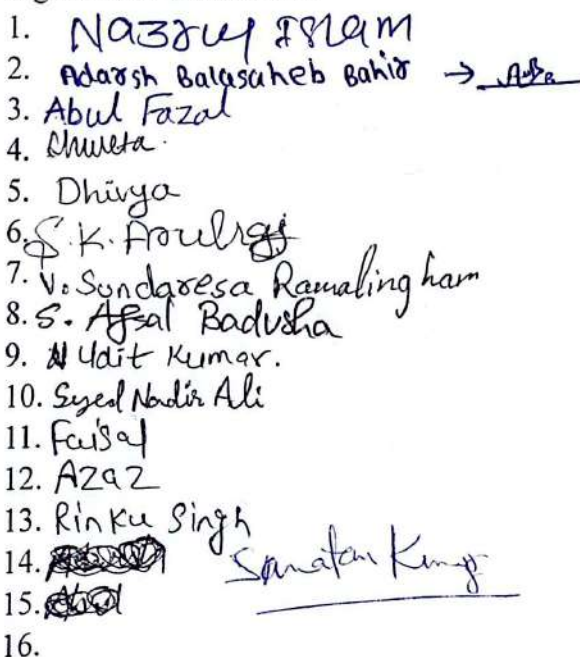 1. Nazrul Islam
2. Adarsh Balasaheb Bahir →
3. Abul Fazal
4. Shweta.
5. Dhivya
6. S.K. Arulraj
7. V. Sundaresa Ramalingham
8. S. Afsal Badusha
9. Udit Kumar.
10. Syed Nadir Ali
11. Faisal
12. Azaz
13. Rinku Singh
14. Sanatan
15.
16.